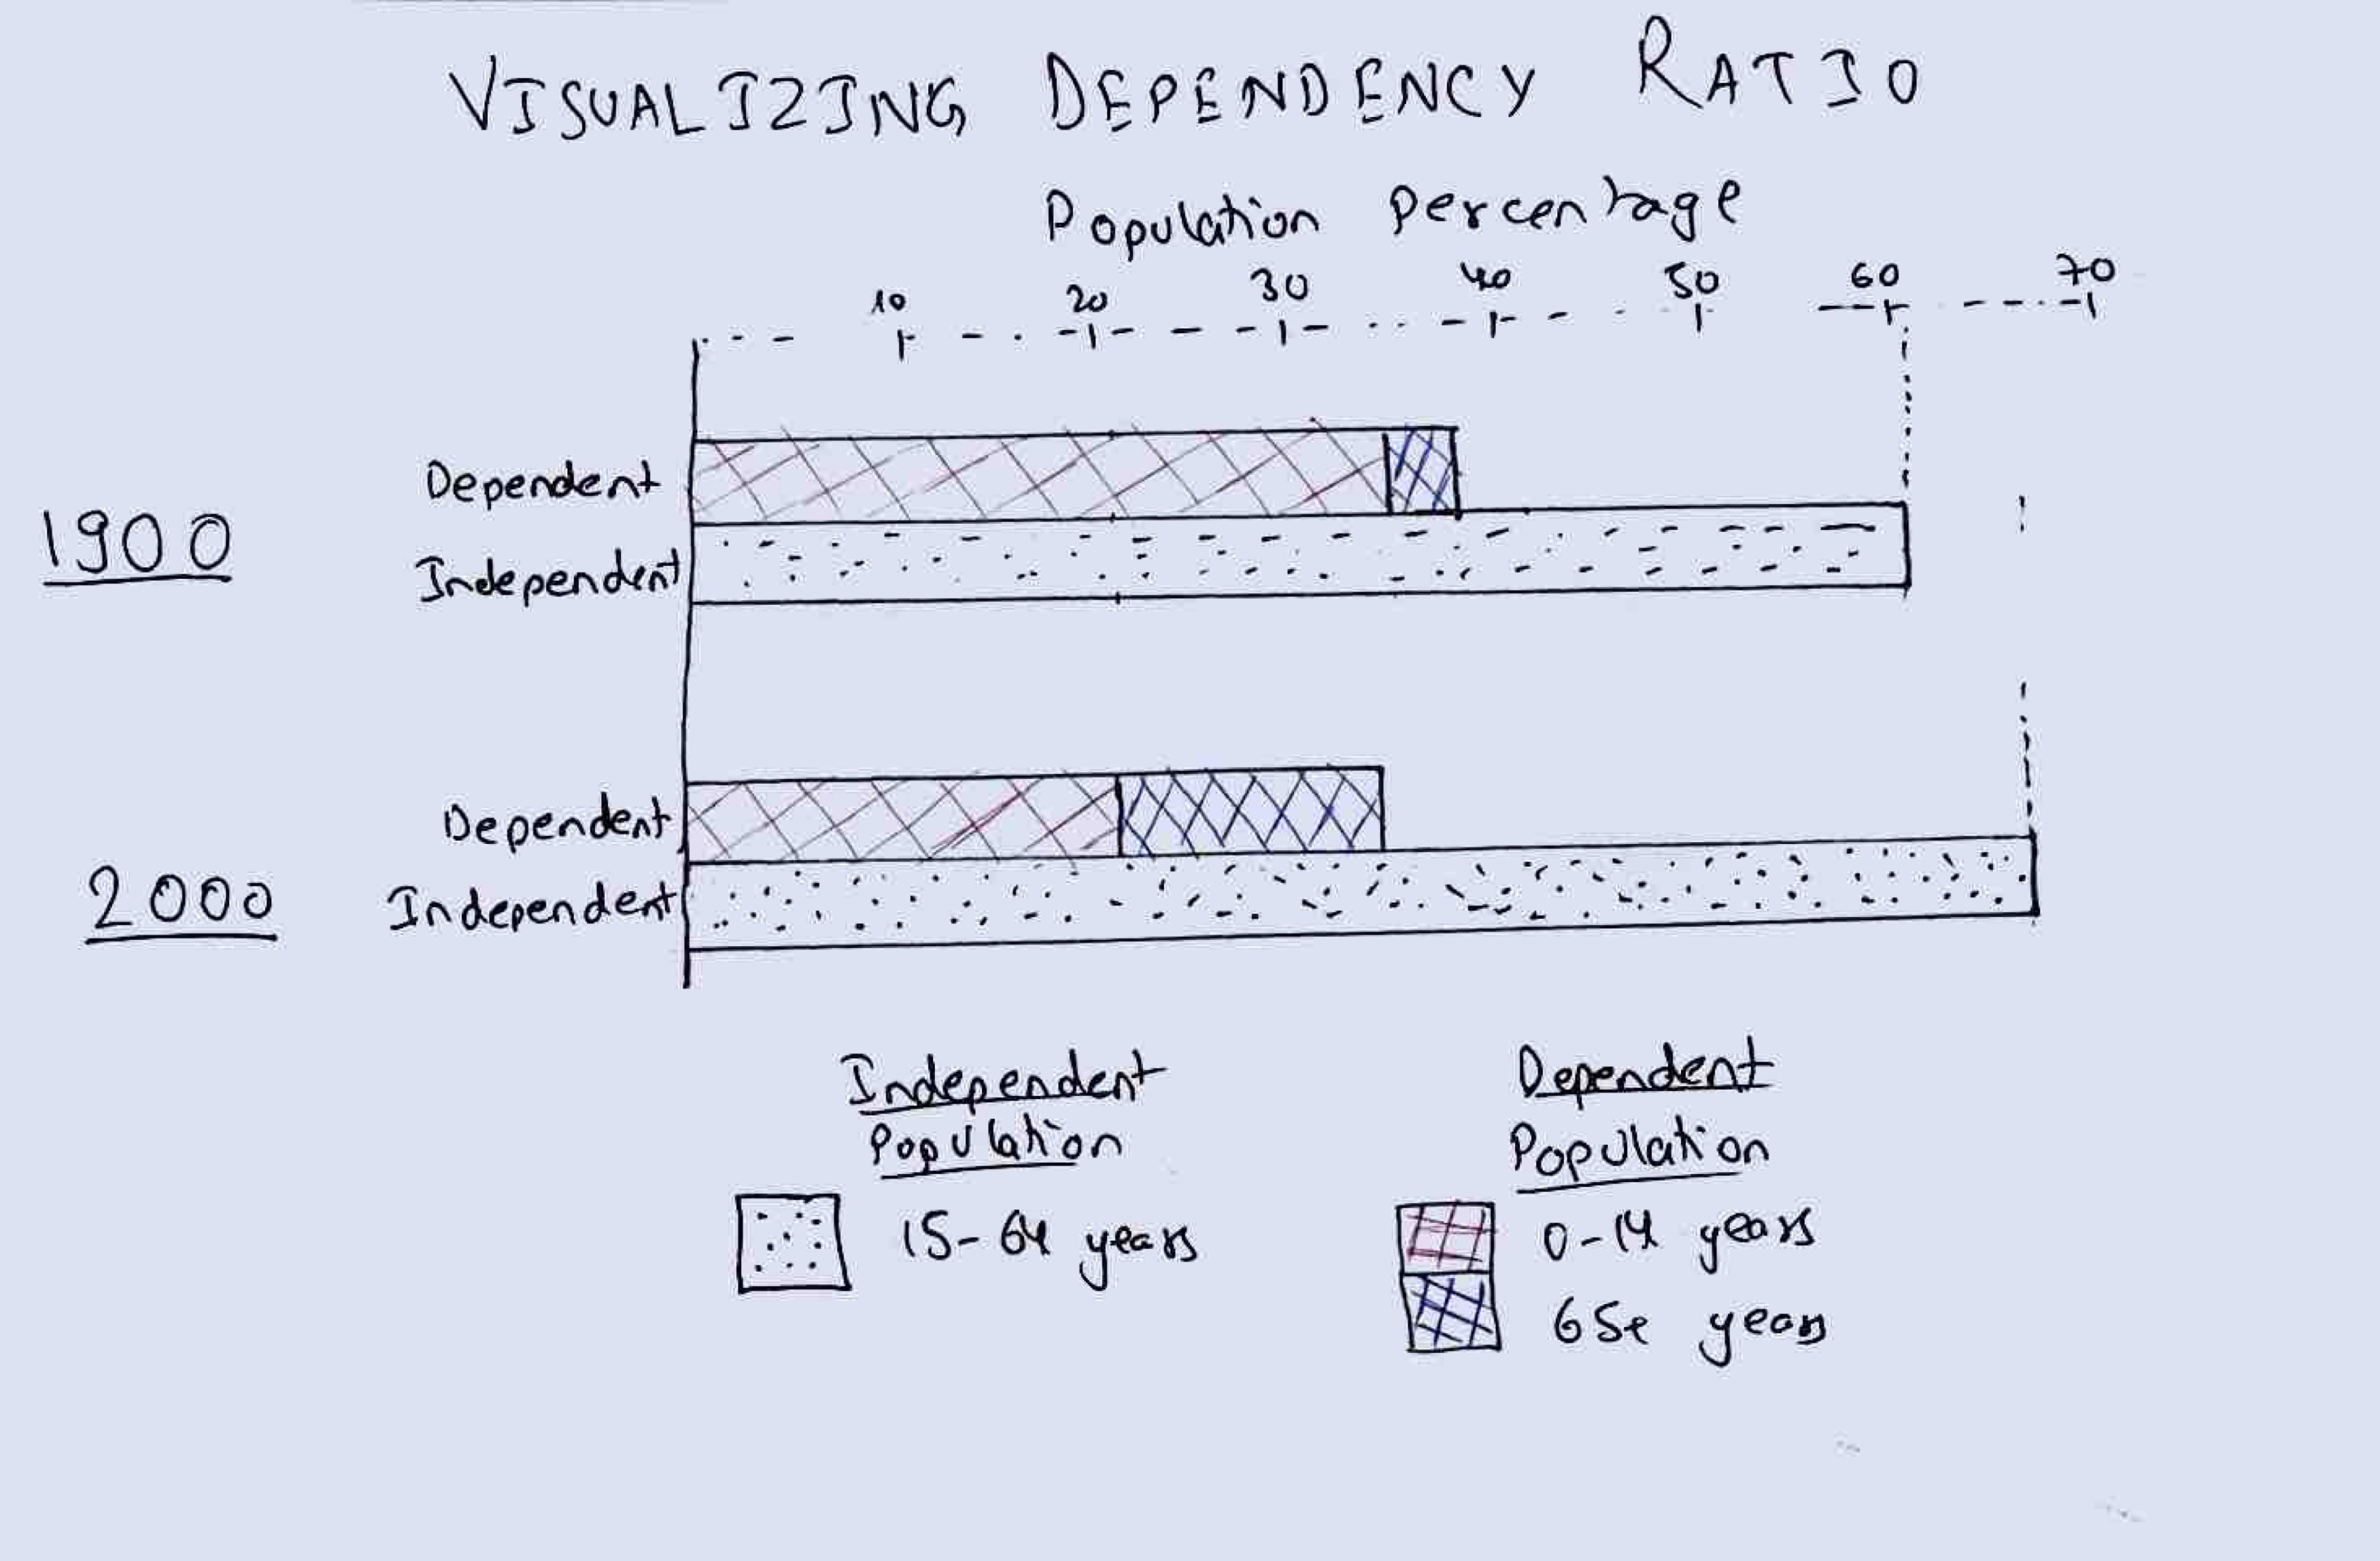 VISUALIZING DEPENDENCY RATIO
Population Percentage
10 20 30 40 50 60 70
Dependent
1900
Independent
Dependent
2000
Independent
Independent Population
15-64 years
Dependent Population
0-14 years
65+ years